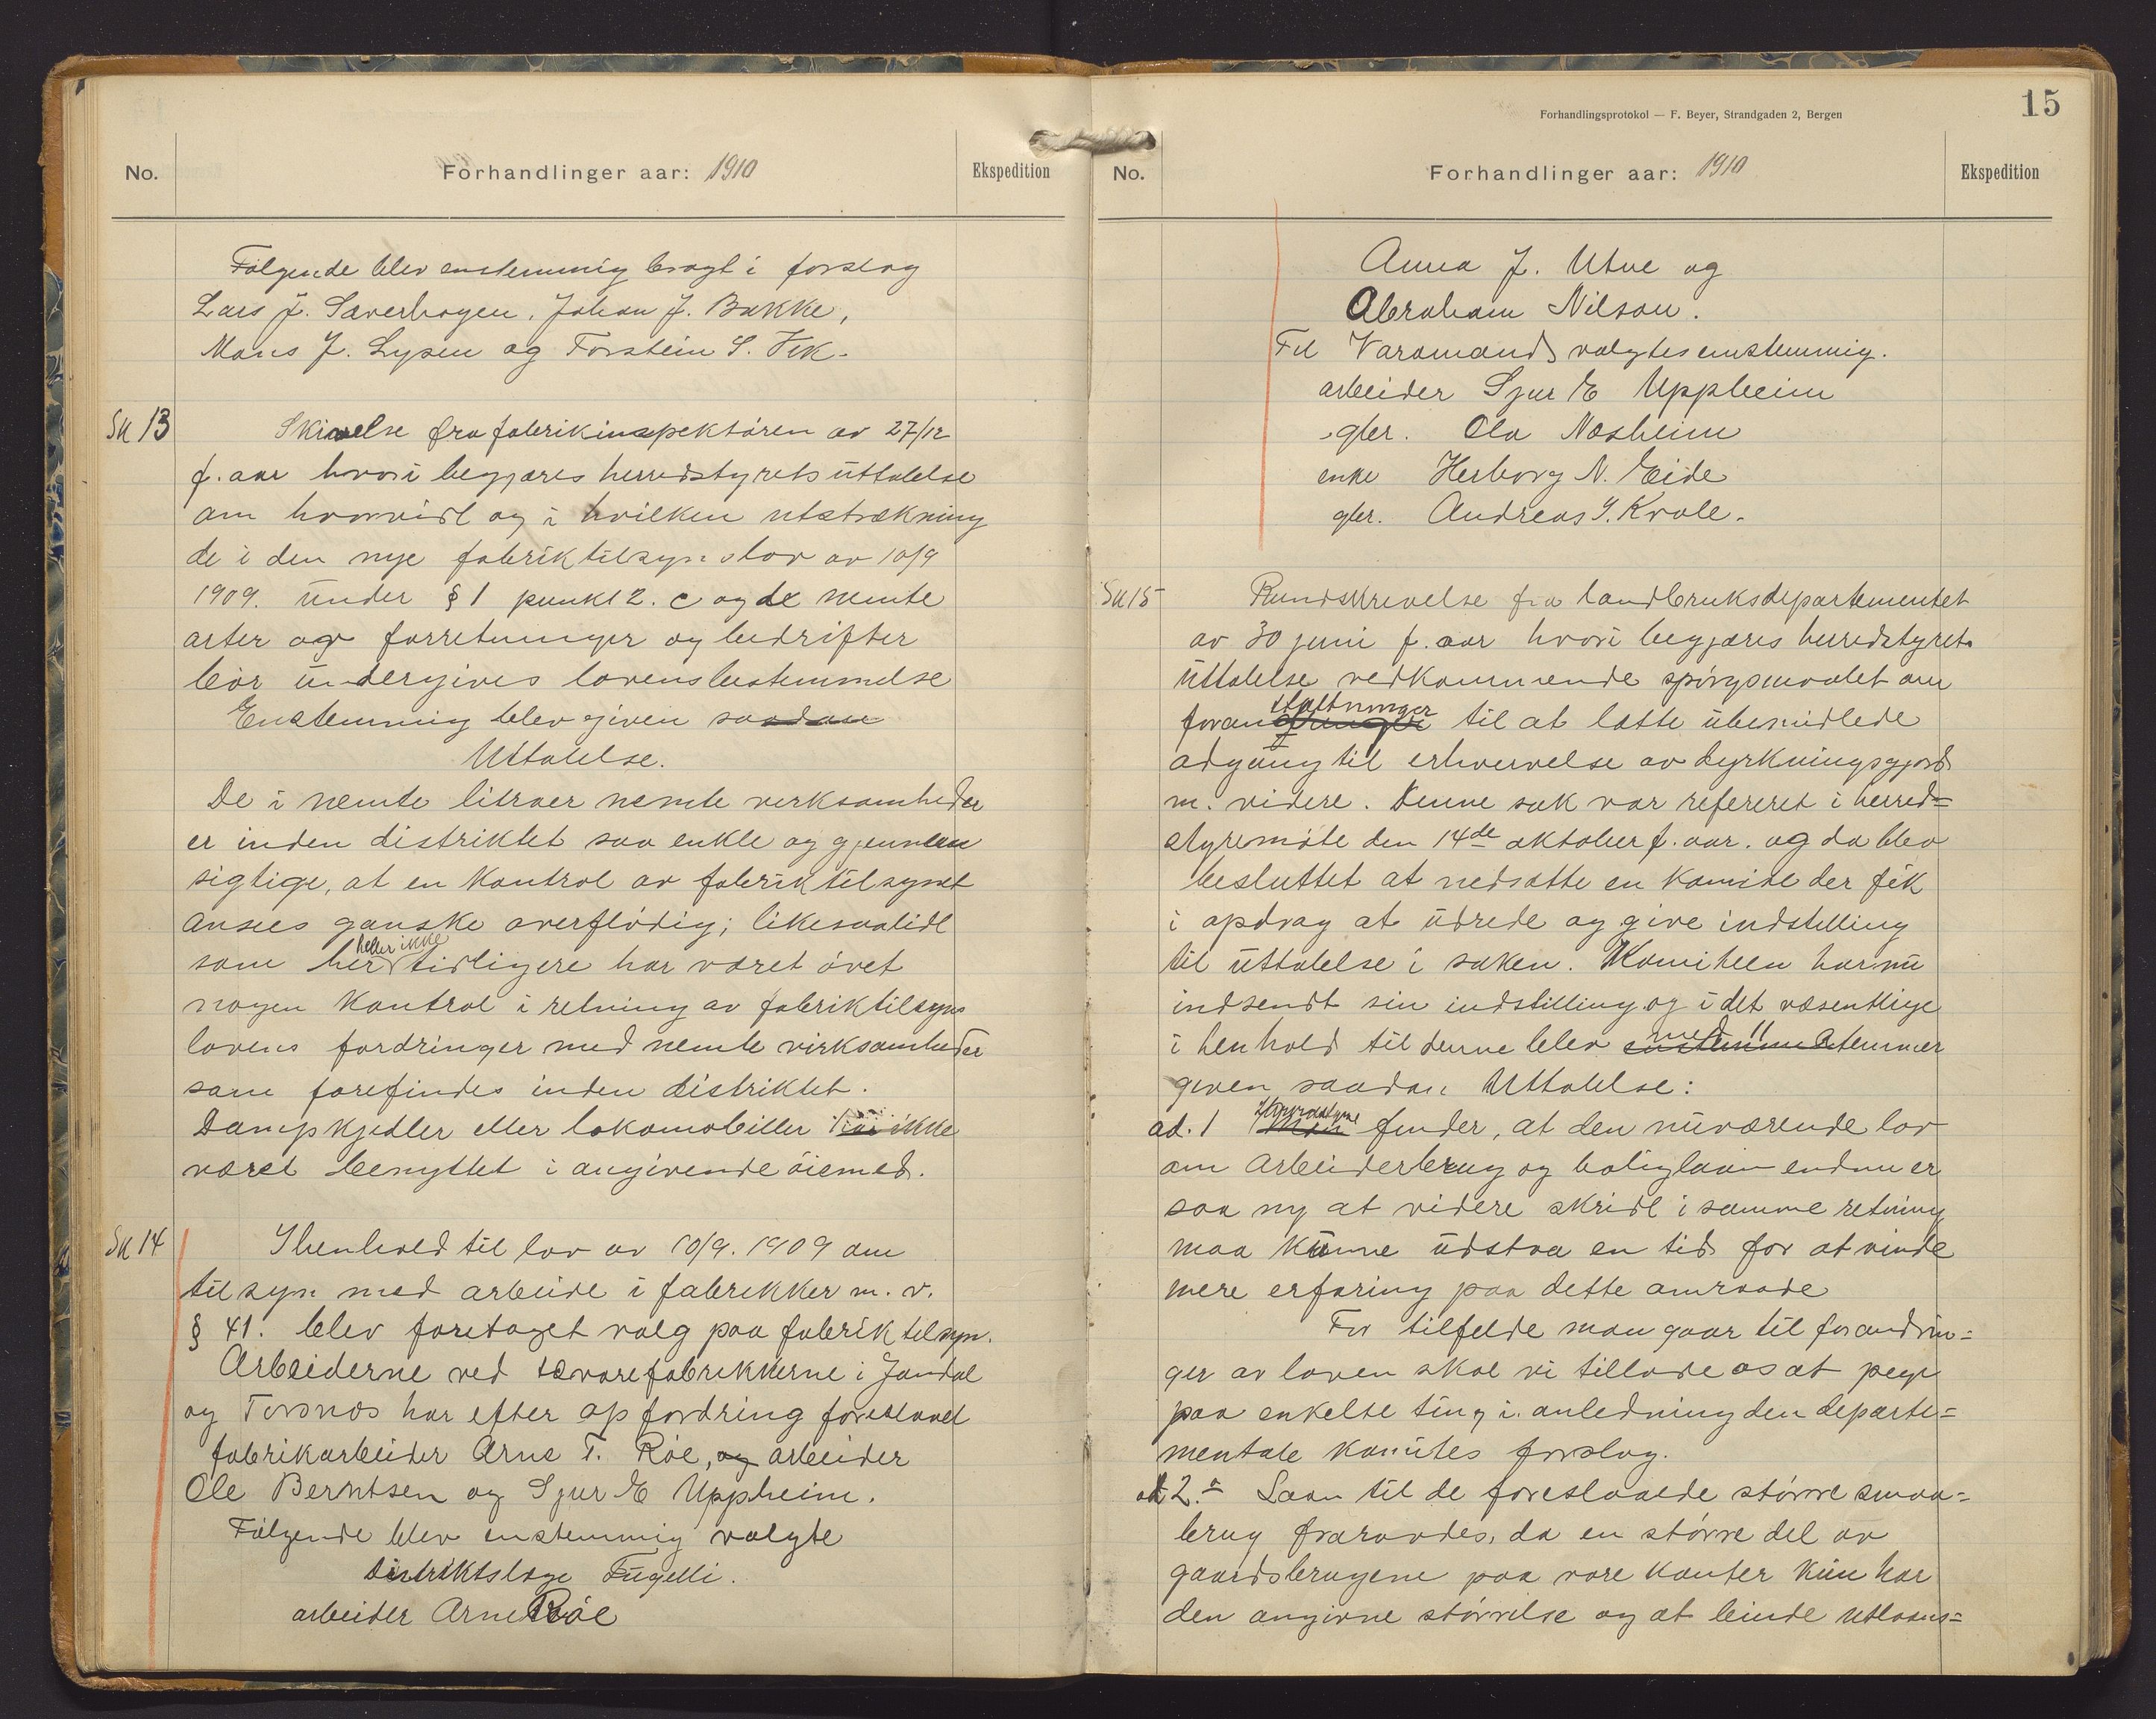 No.
Forhandlinger aar: 1910
Ekspedition
Følgende blev enstemmig bragt i forslag
Lars J. Saverhagen, Johan J. Bakke,
Mons J. Lysen og Torstein S. Vik.
Sk 13
Skrivelse fra fabrikinspektøren av 27/12
f. aar hvori begjæres herredstyrets uttalelse
om hvorvidt og i hvilken utstrækning
de i den nye fabriktilsynslov av 10/9
1909. under § 1 punkt 2. c og d nemte
arter av forretninger og bedrifter
bør undergives lovens bestemmelse
Enstemmig blev given saadan
Uttalelse.
De i nemte litraer nemte verksomheder
er inden distriktet saa enkle og gjennem
sigtige, at en kontrol av fabriktilsynet
ansees ganske overflødig; likesaalidt
som her heller ikke tidligere har været øvet
nogen kontrol i retning av fabriktilsyns
lovens fordringer med nemte virksomheder
som forefindes inden distriktet.
Dampkjedler eller lokomobiller har ikke
været benyttet i angivende øiemed.
Sk 14
I henhold til lov av 10/9. 1909 om
tilsyn med arbeide i fabrikker m. v.
§ 41. blev foretaget valg paa fabriktilsyn.
Arbeiderne ved tøvarefabrikkerne i Jondal
og Torsnæs har efter opfordring foreslaaet
fabrikarbeider Arne T. Røe, og arbeider
Ole Berntsen og Sjur E Uppheim.
Følgende blev enstemmig valgte
Distriktslæge Fugelli.
arbeider Arne Røe
Forhandlingsprotokol — F. Beyer, Strandgaden 2, Bergen
15
No.
Forhandlinger aar: 1910
Ekspedition
Anna J. Utne og
Abraham Nilson.
Til Varamænd valgtes enstemmig.
arbeider Sjur E Uppheim
gbr. Ola Næsheim
enke Herborg N. Eide
gbr. Andreas S. Kvale.
Sk 15
Rundskrivelse fra landbruksdepartementet
av 30 juni f. aar hvori begjæres herredstyrets
uttalelse vedkommende spørgsmaalet om
foranstaltninger til at lette ubemidlede
adgang til erhvervelse av dyrkningsjord
m. videre. Denne sak var refereret i herred=
styremøte den 14de oktober f. aar. og da blev
besluttet at nedsætte en komite der fik
i opdrag at udrede og give indstilling
til uttalelse i saken. Komiteen har nu
indsendt sin indstilling og i det væsentlige
i henhold til denne blev med 11 stemmer
given saadan Uttalelse:
ad. 1 Herredstyre finder, at den nuværende lov
om Arbeiderbrug og boliglaan endnu er
saa ny at videre skridt i samme retning
maa kunne udstaa en tid for at vinde
mere erfaring paa dette omraade
For tilfelde man gaar til forandrin=
ger av loven skal vi tillade os at pege
paa enkelte ting i anledning den departe=
mentale komites forslag.
ad 2.a Laan til de foreslaaede større smaa=
brug fraraades, da en større del av
gaardsbrugene paa vore kanter kun har
den angivne størrelse og at binde utlaans=